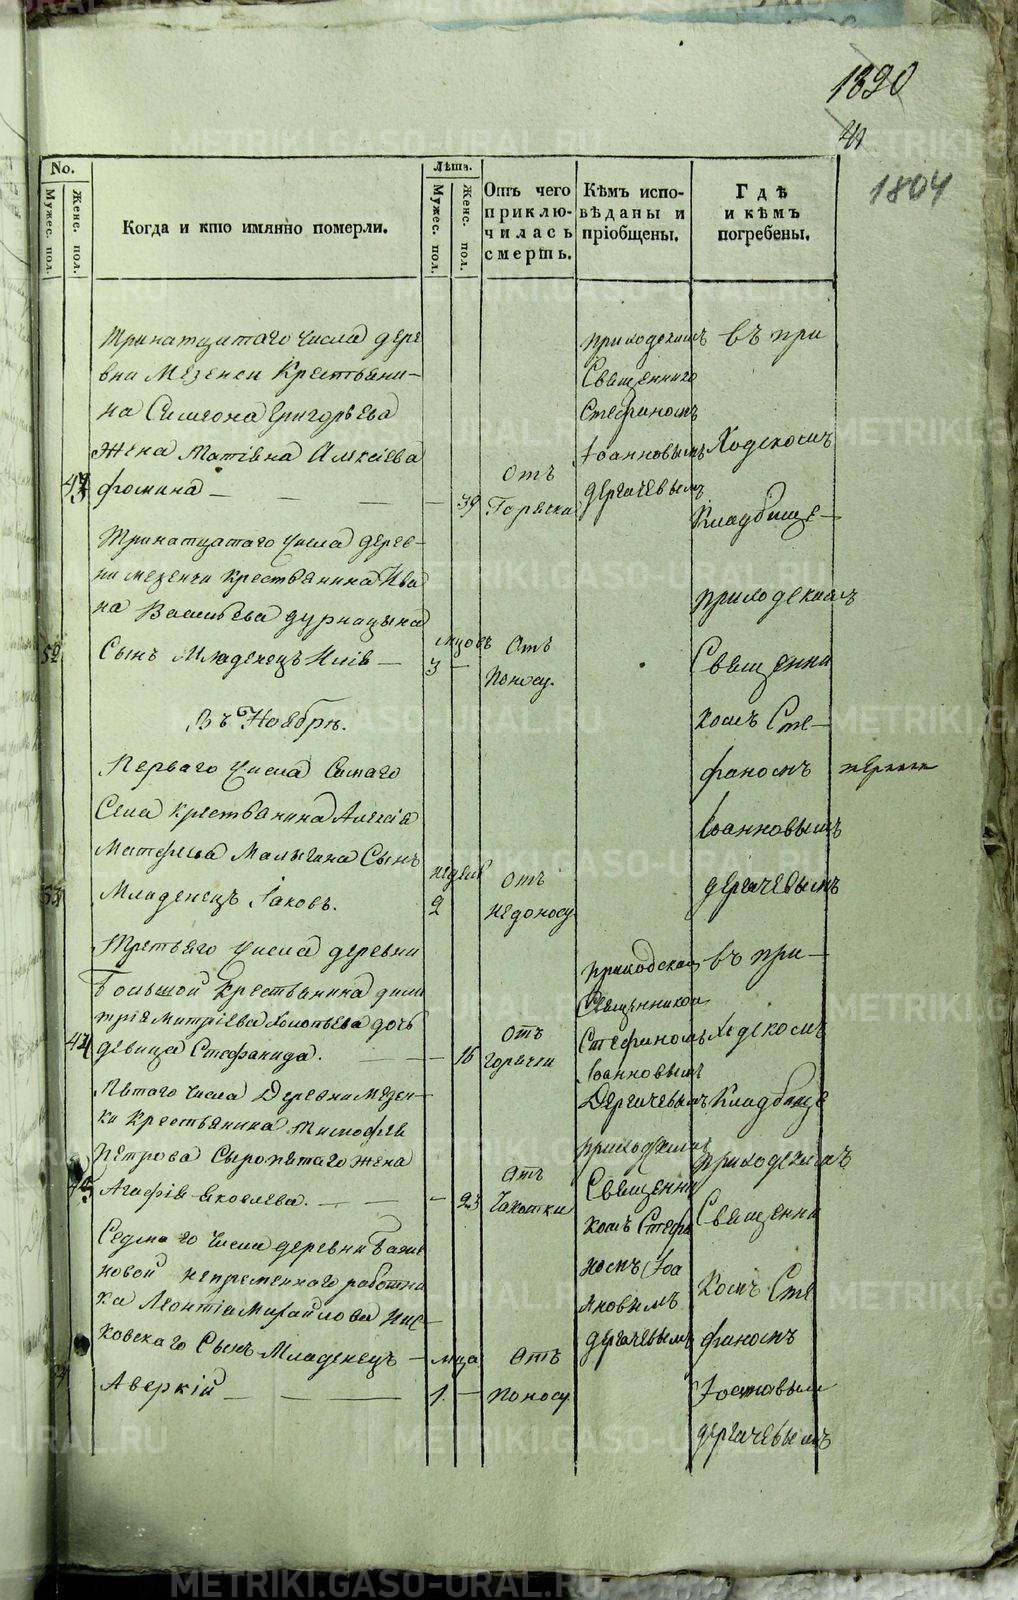 1804
No.
Мужес. пол.
Женс. пол.
Когда и кто имянно померли.
Лѣта.
Мужес. пол.
Женс. пол.
Отъ чего
приклю-
чилась
смерть.
Кѣмъ испо-
вѣданы и
пріобщены.
Гдѣ
и кѣмъ
погребены.
Тринатцатаго числа дере
вни Мезенки Крестьяни-
на Симеона Григорьева
Жена Матвѣна Алексіева
Фомина
39
Отъ
Горячки
приходскимъ
Священнико
Стефаномъ
Іоанновымъ
Дергачевымъ
въ при
Ходскомъ
Кладбище
Тринатцатаго числа дерев-
ни мезенки крестьянина Ива
на Васильева
52
Сынъ Младенецъ
мцовъ
3
Отъ
Поносу.
приходскимъ
Священни
комъ Сте-
фаномъ
Іоанновымъ
дергачевымъ
Въ Ноябрѣ.
Перваго числа Самаго
Села крестьянина Алексія
Матфѣева Малыгина Сынъ
53
Младенецъ Іаковъ.
недель
2
Отъ
недоносу
Третьяго числа деревни
Большой крестьянина дими
трія Митріева дочь
44
девица Стефанида.
16
Отъ
горячки
приходскимъ
Священникомъ
Стефаномъ
Іоанновымъ
Дергачевымъ
въ при-
Ходскомъ
Кладбище
Пятаго числа Деревни Мезен-
ки Крестьянина Тимофея
Петрова Сыропятаго жена
45
Агафія Яковлева.
23
Отъ
Чахотки
приходскимъ
Священни
комъ Стефа
номъ Іоа
новымъ
дергачевымъ
приходскимъ
Священни
комъ Сте
фаномъ
дергачевымъ
Седмаго числа деревни
новой непременнаго работни
ка Леонтія Михайлова
ковскаго Сынъ Младенецъ
Аверкій
мца
1
Отъ
поносу
METRIKI.GASO-URAL.RU